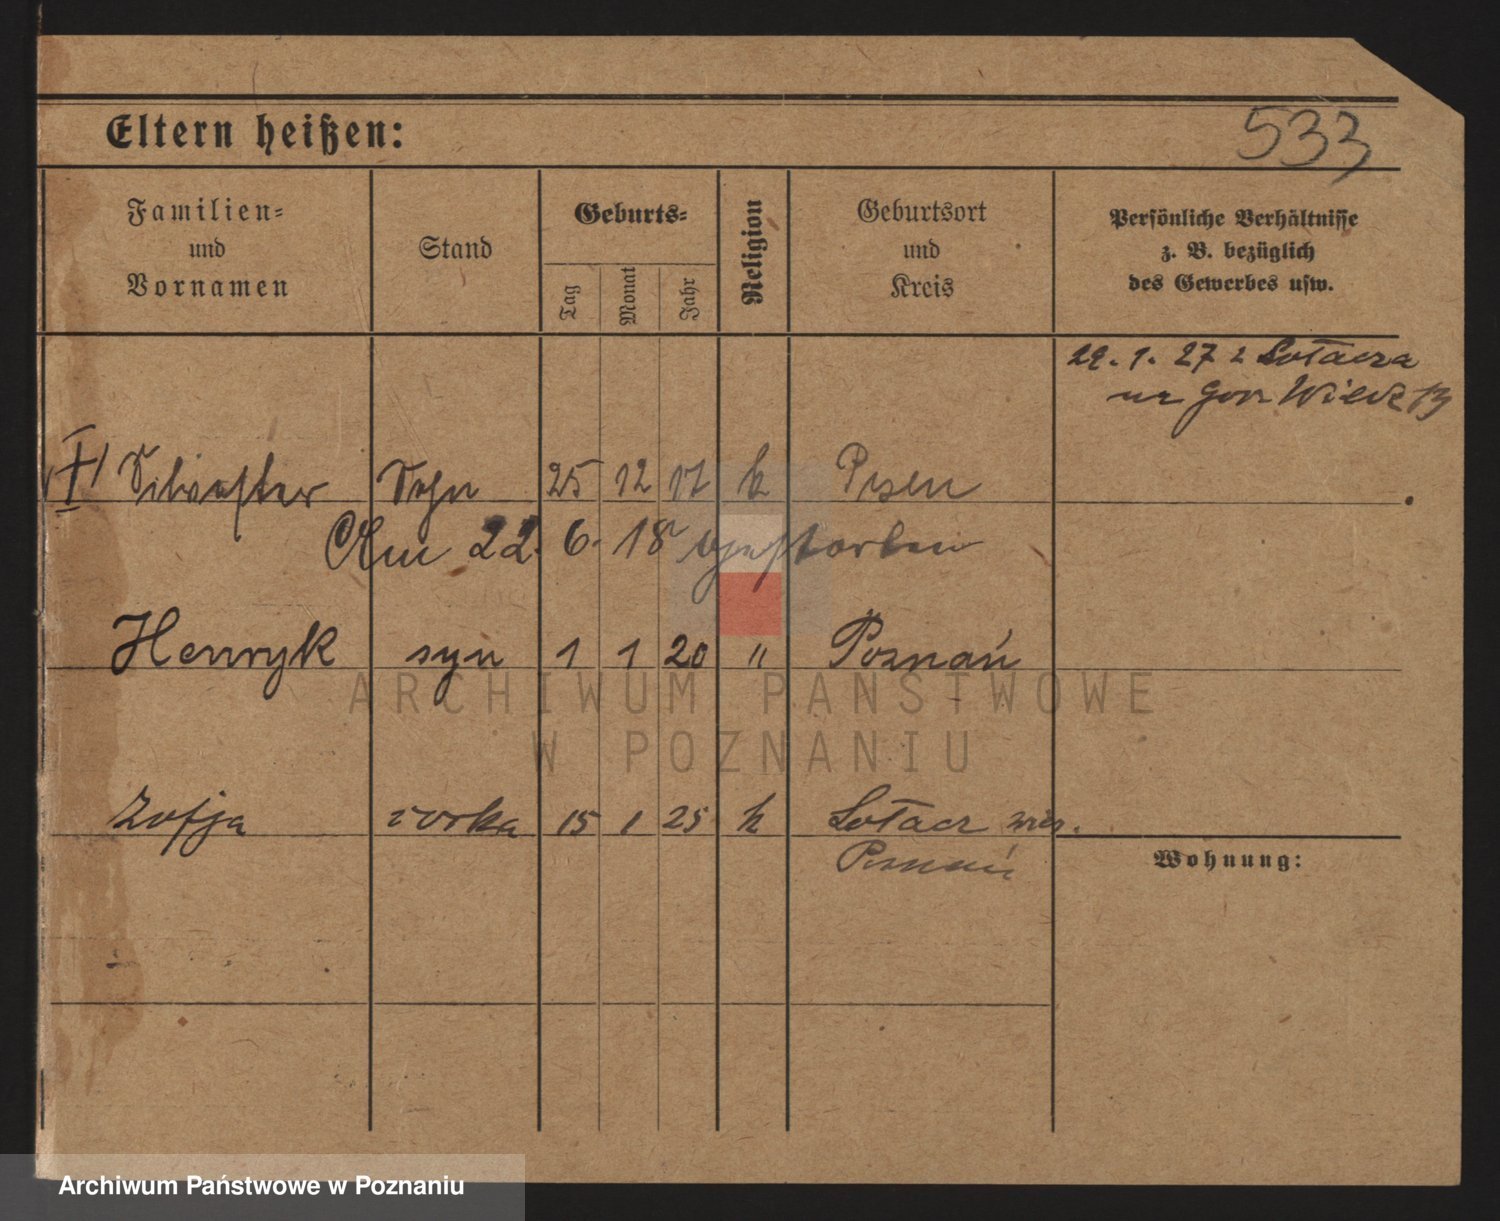 Eltern heißen:
533
Familien=
und
Vornamen
Stand
Geburts=
Tag
Monat
Jahr
Religion
Geburtsort
und
Kreis
Persönliche Verhältnisse
z. B. bezüglich
des Gewerbes usw.
22. 1. 27 z Sołacza
na Gór Wilda 13
Silvester Sohn 25 12 17 k Posen
Am 22. 6. 18 gestorben
Henryk syn 1 1 20 " Poznań
Zofja córka 15 1 25 k Sołacz
Poznań
Wohnung:
ARCHIWUM PAŃSTWOWE
W POZNANIU
Archiwum Państwowe w Poznaniu